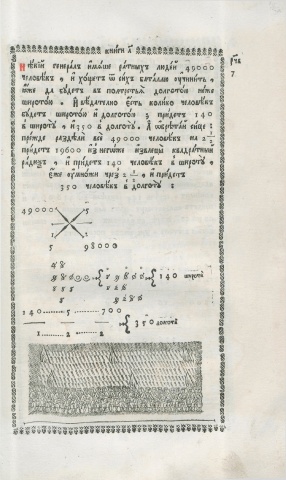 книги а҃
рчв
7
Нѣкій генералъ имѣше ратныхъ людей 49000
человѣкъ, и хощетъ ѿ сихъ баталію учинить,
яже да будетъ въ полтретья долготою неже
широтою. И вѣдателно есть колико человѣкъ
будетъ широтою и долготою; прїидетъ 140
в широту, и 350 в долготу. А изрѣтай сице:
прежде раздѣли всѣ 49000 человѣкъ на 2 1/2
прїидетъ 19600 изъ негоже извлецы квадратный
радиѯъ, и прїидетъ 140 человѣкъ в широту,
еже умножи чрез 2 1/2, и прїидетъ
350 человѣкъ в долготу :
49000 5
1 2
5 98000
140 широта
140 5 700
1 2 2
350 долгота